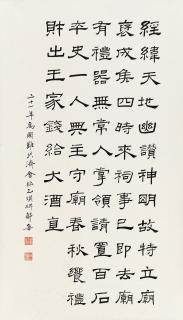 經緯天地幽讚神明故特立廟
褒成侯四時來祠事已即去廟
有禮器無常人掌領請置百石
卒史一人典主守廟春秋饗禮
財出王家錢給大酒直
二十一年為國難共濟會臨乙瑛碑邵章